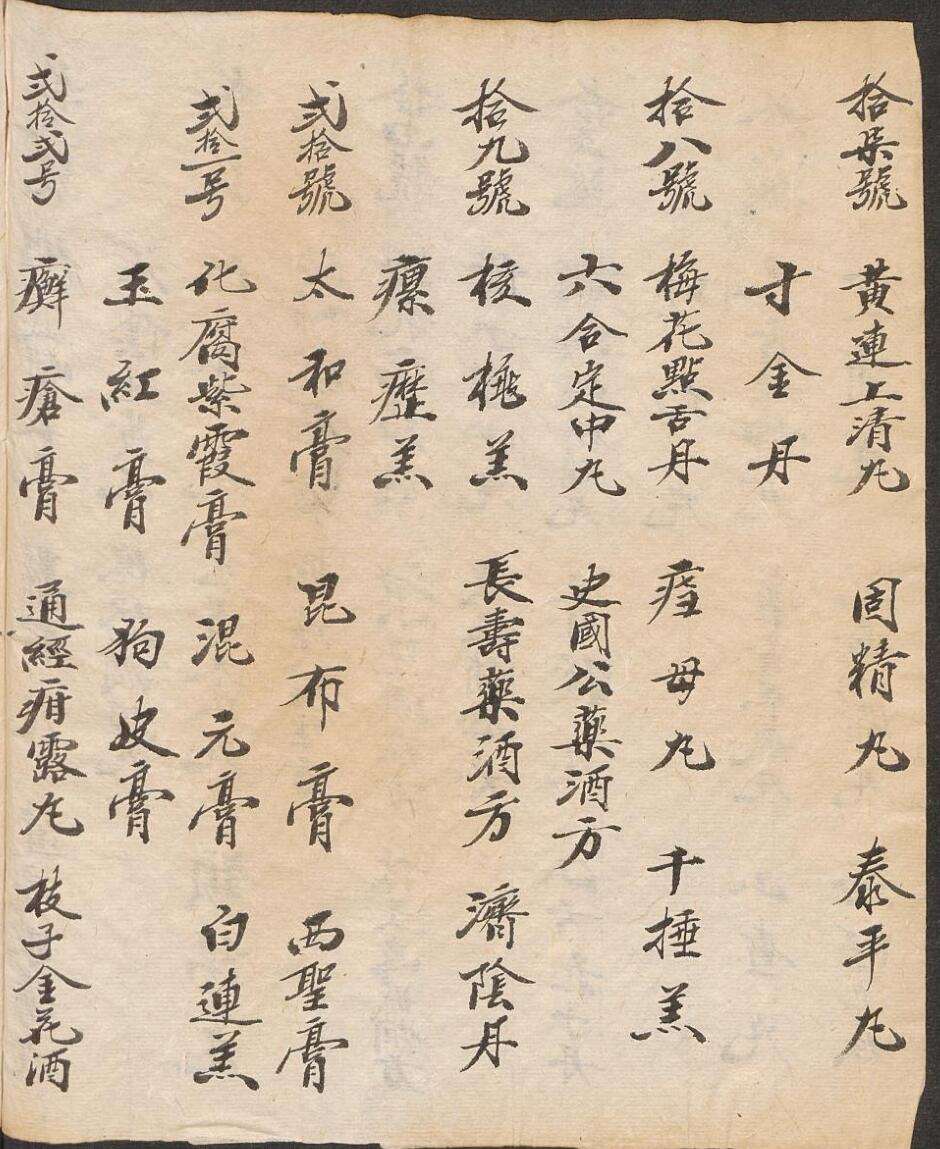 拾柒號 黃連上清丸 固精丸 泰平丸
寸金丹
拾八號 梅花點舌丹 瘧母丸 千捶羔
六合定中丸 史國公藥酒方
拾九號 核桃羔 長壽藥酒方 濟陰丹
瘰癧羔
弍拾號 太和膏 昆布膏 西聖膏
弍拾一号 化腐紫霞膏 混元膏 白連羔
玉紅膏 狗皮膏
弍拾弍号 癬瘡膏 通經疳露丸 枝子金花酒